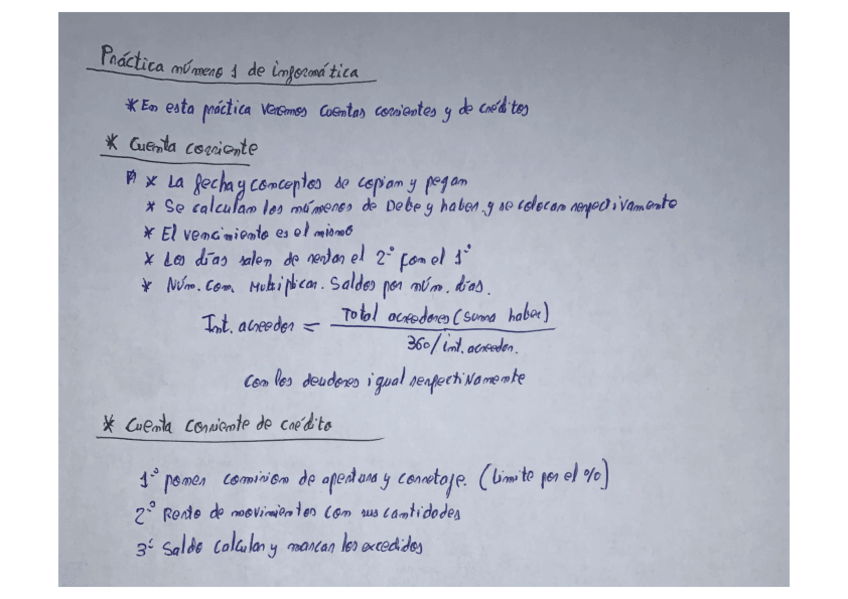 Práctica número 1 de informática
* En esta práctica veremos cuentas corrientes y de créditos
* Cuenta corriente
* La fecha y conceptos se copian y pegan
* Se calculan los números de Debe y haber y se colocan respectivamente
* El vencimiento es el mismo
* Los días salen de restar el 2º con el 1º
* Núm. com. Multiplicar. Saldos por núm. días.
Int. acreedor = Total acreedores (suma haber)
360/int. acreedor.
Con los deudores igual respectivamente
* Cuenta corriente de crédito
1º poner comision de apertura y corretaje. (Limite por el %)
2º Resto de movimientos con sus cantidades
3º Saldo calcular y marcar los excedidos